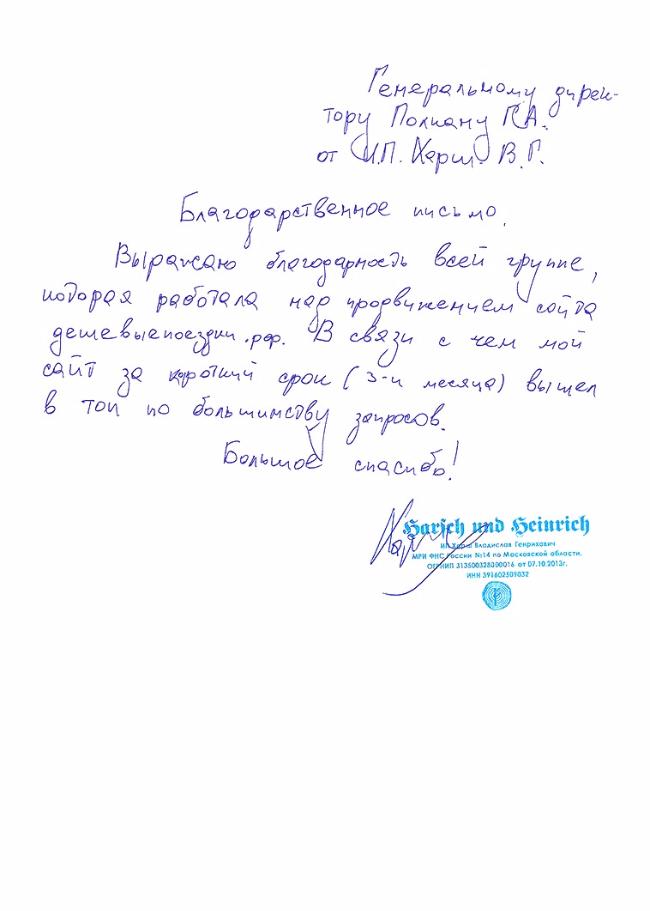 Генеральному дирек-
тору Полиану Г.А.
от И.П. Харш В.Г.
Благодарственное письмо.
Выражаю благодарность всей группе,
которая работала над продвижением сайта
дешевыепоездки.рф. В связи с чем мой
сайт за короткий срок (3-и месяца) вышел
в топ по большинству запросов.
Большое спасибо!
Harsch und Heinrich
ИП Харш Владислав Генрихович
МРИ ФНС России №14 по Московской области.
ОГРНИП 313500328000016 от 07.10.2013г.
ИНН 391602509032